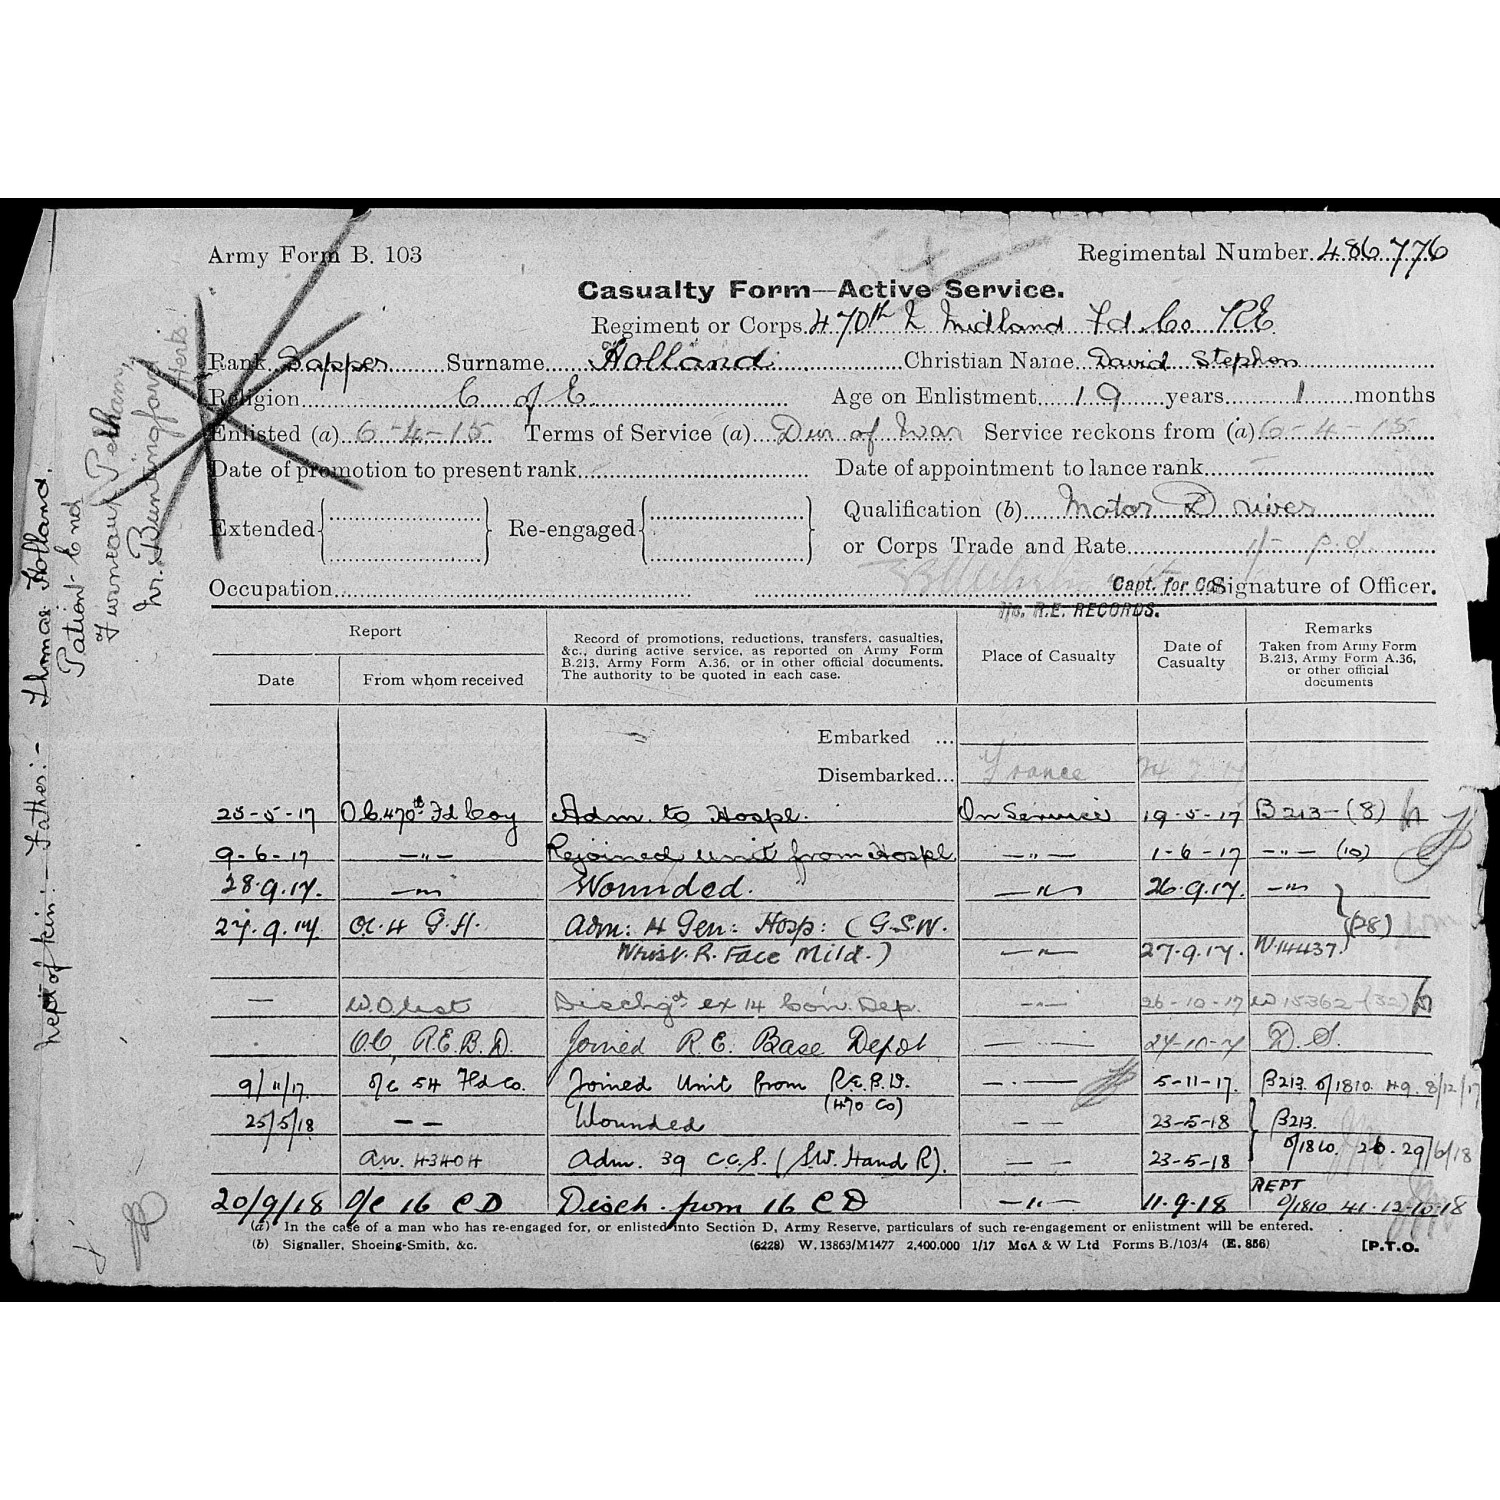 Army Form B. 103
Regimental Number 486776
Casualty Form—Active Service.
Regiment or Corps 470th N Midland Fd. Co RE
Rank Sapper Surname Holland Christian Name David Stephen
Religion C of E. Age on Enlistment 19 years 1 months
Enlisted (a) 6-4-15 Terms of Service (a) Dur of War Service reckons from (a) 6-4-15
Date of promotion to present rank Date of appointment to lance rank
Extended Re-engaged Qualification (b) Motor Driver
or Corps Trade and Rate 1/- p.d.
Occupation Capt. for Col Signature of Officer.
R.E. RECORDS.
Report
Date From whom received
Record of promotions, reductions, transfers, casualties, &c., during active service, as reported on Army Form B.213, Army Form A.36, or in other official documents. The authority to be quoted in each case.
Place of Casualty
Date of Casualty
Remarks
Taken from Army Form B.213, Army Form A.36, or other official documents
Embarked ...
Disembarked... France
25-5-17 O.C. 470th Fd Coy Adm. to Hospl. On Service 19-5-17 B213-(8)
9-6-17 —"— Rejoined unit from Hospl —"— 1-6-17 —"— (10)
28.9.17. —"— Wounded. —"— 26.9.17. —"—
27.9.17. OC. 4 G.H. Adm: 4 Gen: Hosp: (G.S.W. (28)
Wrist. R. Face Mild.) —"— 27.9.17. W.14437.
— W.O. List Dischgd ex 14 Con. Dep. —"— 26-10-17 W15362-(32)
OC, R.E.B.D. Joined R.E. Base Depot D.S.
9/11/17 o/c 54 Fd Co. Joined Unit from R.E.B.D. — - — 5-11-17. B213. O/1810. 49. 8/12/17
(470 Co)
25/5/18 — — Wounded — — 23-5-18 B213.
an. 43404 Adm. 39 C.C.S. (S.W. Hand R). — — 23-5-18 O/1810. 26. 29/6/18
20/9/18 O/c 16 C D Disch. from 16 C D —"— 11-9-18 REPT O/1810 41. 12-10-18
(a) In the case of a man who has re-engaged for, or enlisted into Section D, Army Reserve, particulars of such re-engagement or enlistment will be entered.
(b) Signaller, Shoeing-Smith, &c. (6228) W. 13863/M1477 2,400.000 1/17 McA & W Ltd Forms B./103/4 (E. 856) [P.T.O.
Next of kin:— Father:— Thomas Holland.
Patient End
Furneaux Pelham,
Nr. Buntingford
Herts.